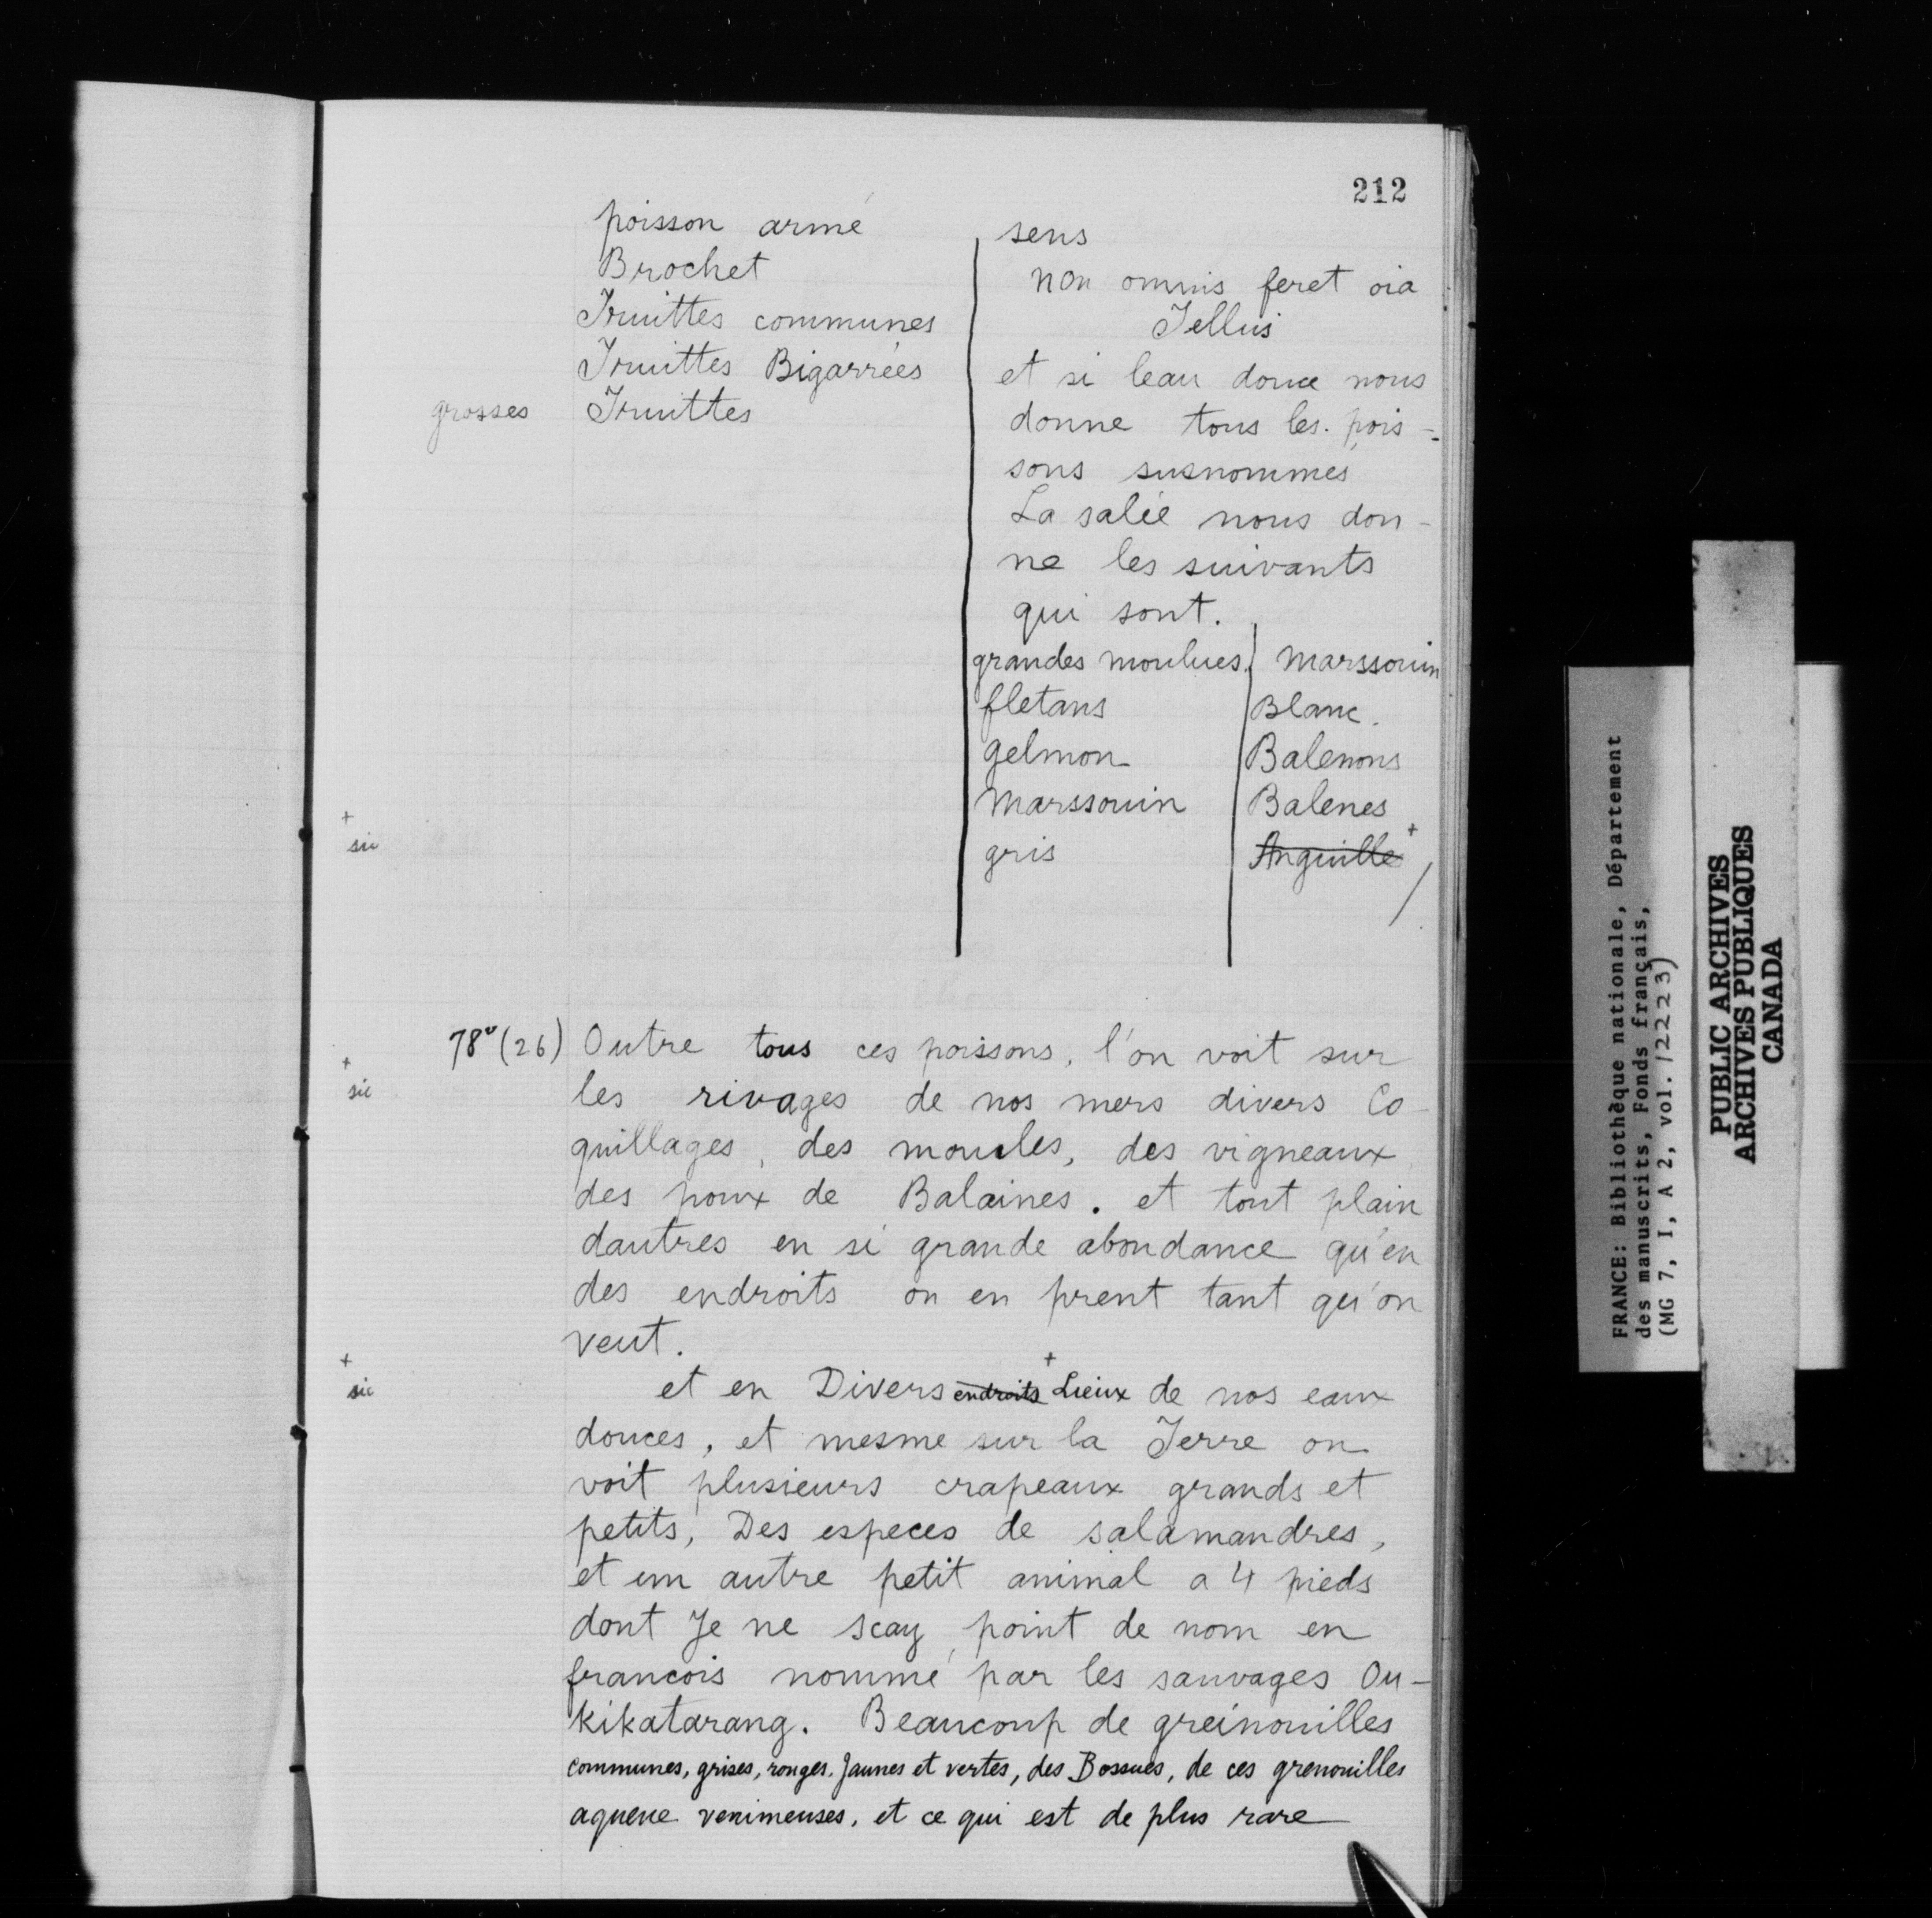 212
poisson armé
Brochet
Truittes communes
Truittes Bigarrées
grosses Truittes
sens
non omnis feret oia
Tellus
et si leau douce nous
donne tous les pois-
sons susnommés
La salée nous don-
ne les suivants
qui sont.
grandes moulues.
fletans
gelmon
Marssouin
gris
Marssouin
Blanc.
Balenons
Balenes
Anguille +
+
sic
78v (26) Outre tous ces poissons, l'on voit sur
+
sic
les rivages de nos mers divers Co-
quillages, des moucles, des vigneaux
des poux de Balaines. et tout plain
dautres en si grande abondance qu'en
des endroits on en prent tant qu'on
veut.
+
sic
et en Divers endroits + Lieux de nos eaux
douces, et mesme sur la Terre on
voit plusieurs crapeaux grands et
petits, Des especes de salamandres,
et un autre petit animal a 4 pieds
dont Je ne scay point de nom en
francois nommé par les sauvages Ou-
kikatarang. Beaucoup de greinouilles
communes, grises, rouges, Jaunes et vertes, des Bossues, de ces grenouilles
aqueue venimeuses, et ce qui est de plus rare
FRANCE: Bibliothèque nationale, Département
des manuscrits, Fonds français,
(MG 7, I, A 2, vol. 12223)
PUBLIC ARCHIVES
ARCHIVES PUBLIQUES
CANADA